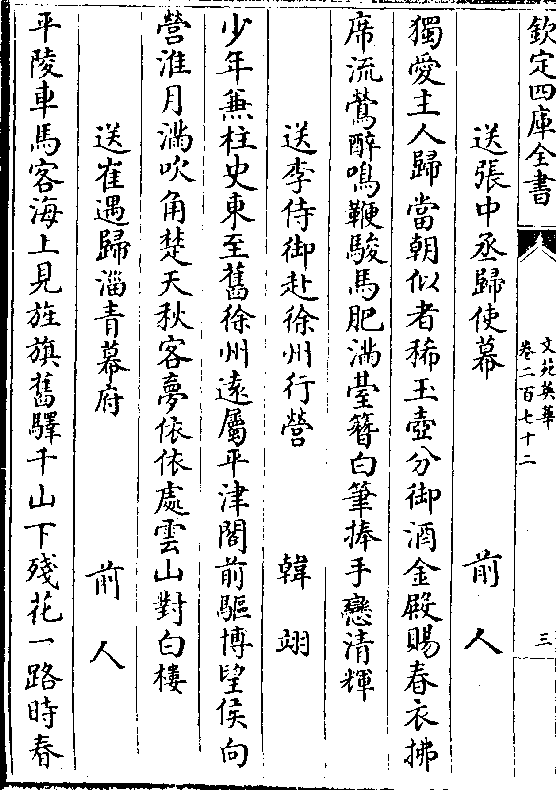 欽定四庫全書
文苑英華
卷二百七十二
三
送張中丞歸使幕 前人
獨愛主人歸當朝似者稀玉壺分御酒金殿賜春衣拂
席流鶯醉鳴鞭駿馬肥滿臺簪白筆捧手戀清輝
送李侍御赴徐州行營 韓翃
少年兼柱史東至舊徐州遠屬平津閤前驅博望侯向
營淮月滿吹角楚天秋客夢依依處雲山對白樓
送崔遇歸淄青幕府 前人
平陵車馬客海上見旌旗舊驛千山下殘花一路時春